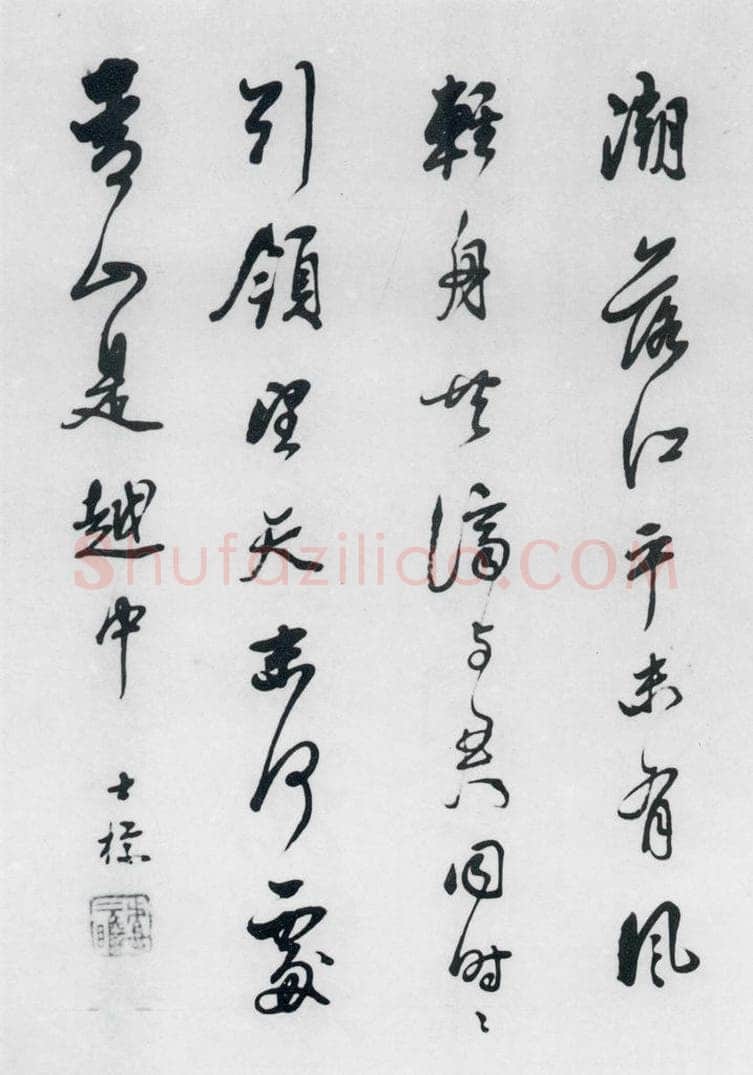 潮落江平未有風
輕舟共濟与君同時〻
引領望天末何處
青山是越中
士標
Shufaziliao.COM